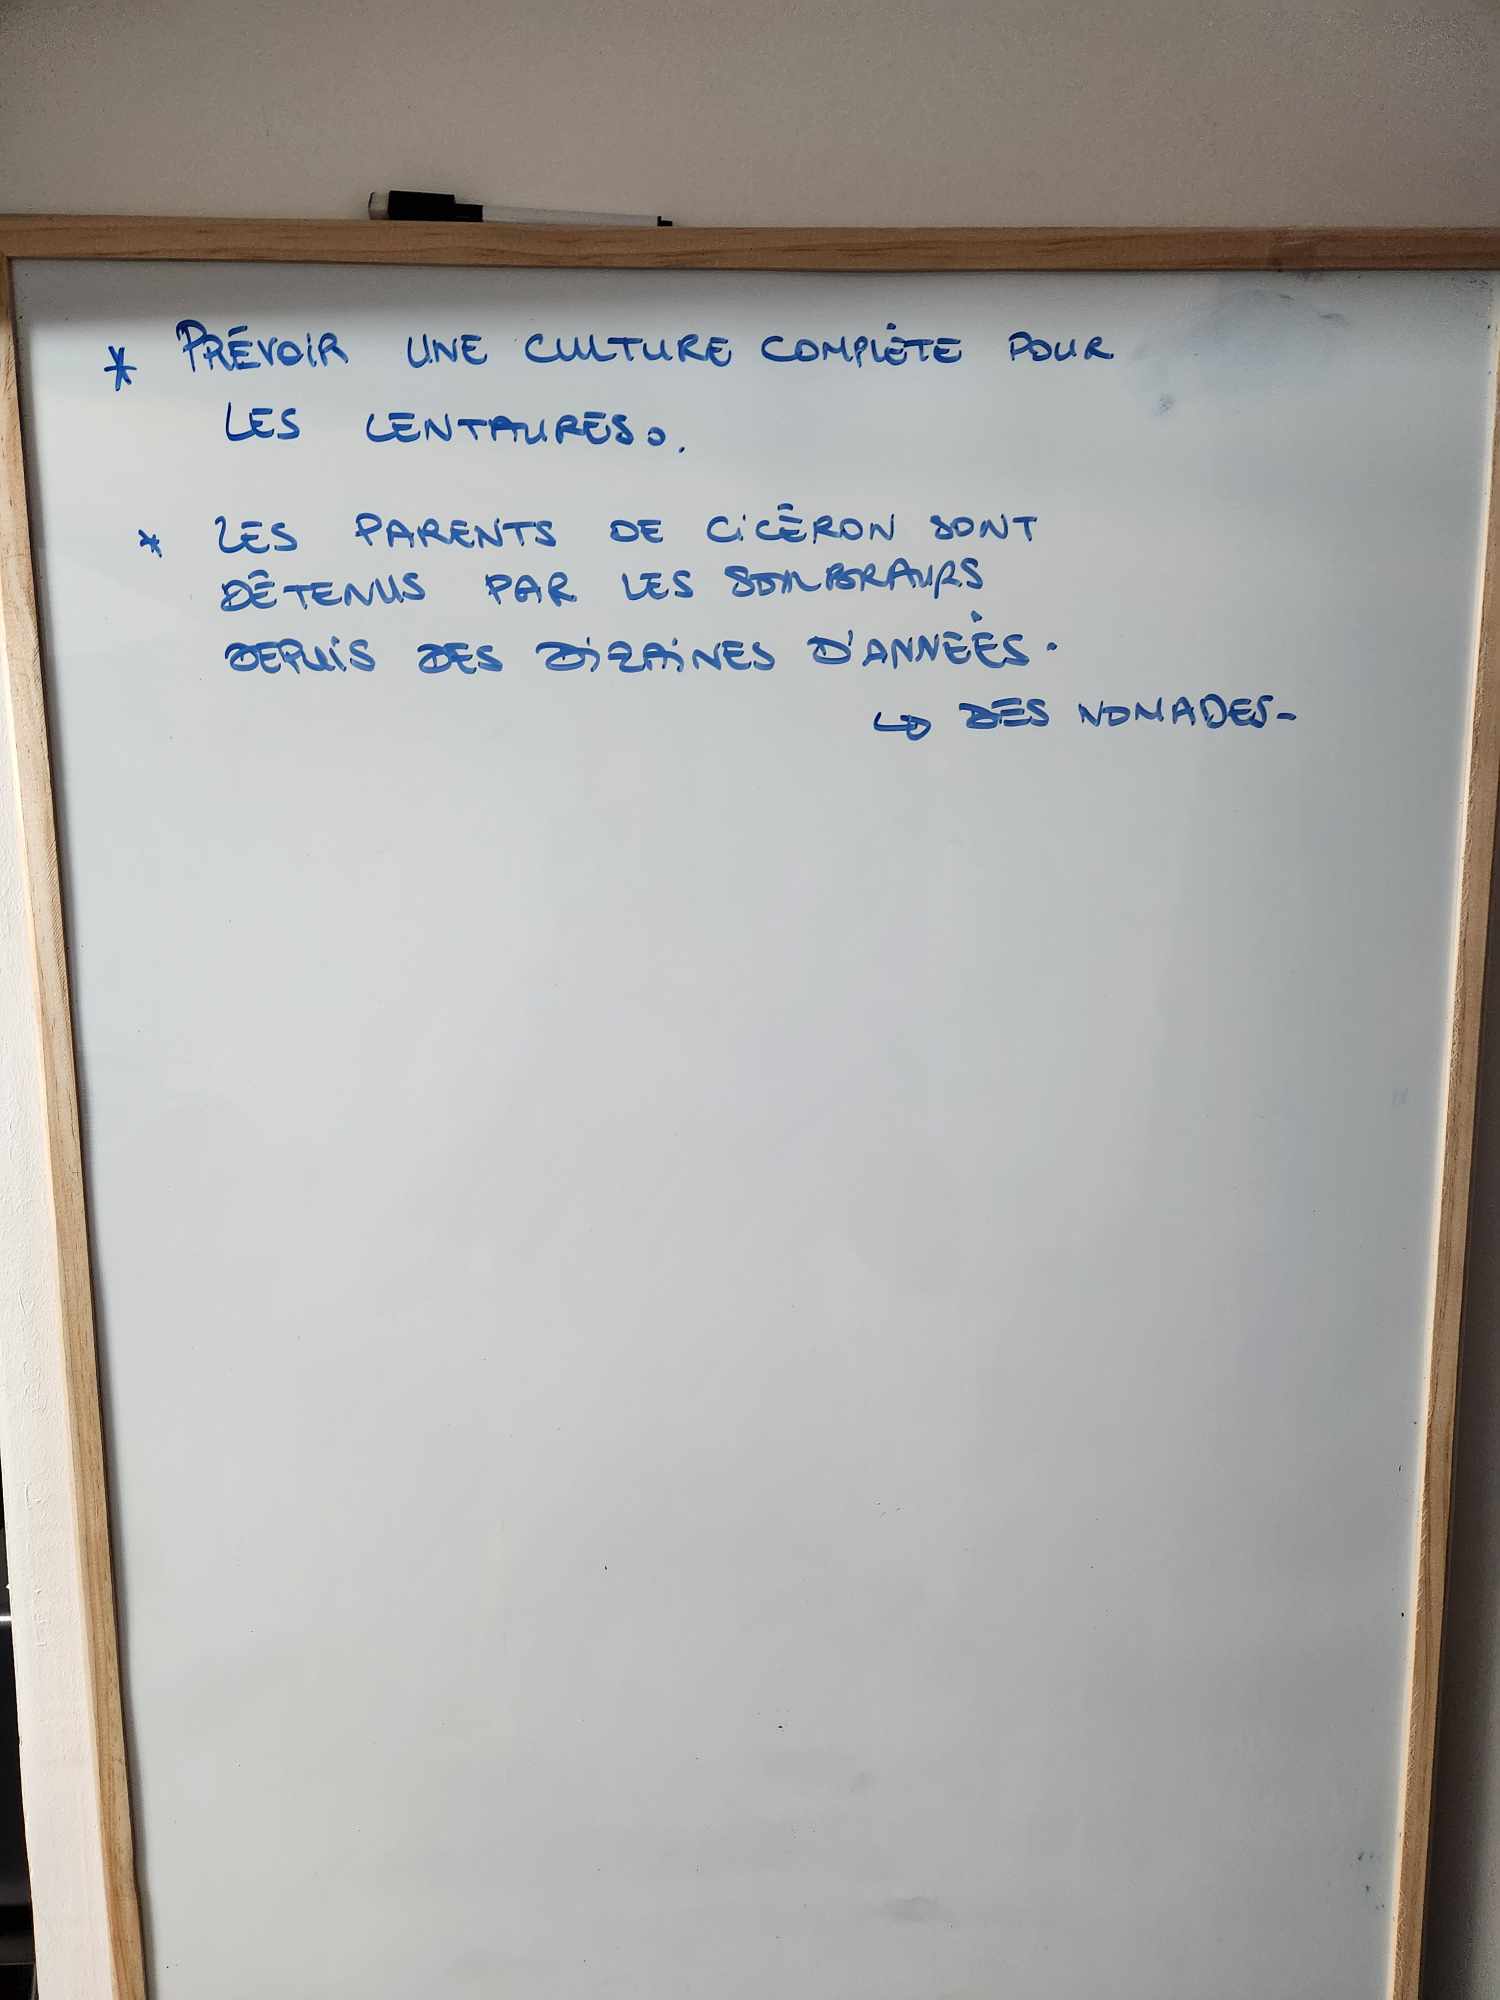 * PRÉVOIR UNE CULTURE COMPLÈTE POUR
LES CENTAURES.
* LES PARENTS DE CICÉRON SONT
DÉTENUS PAR LES
DEPUIS DES DIZAINES D'ANNEÉS.
↳ DES NOMADES-